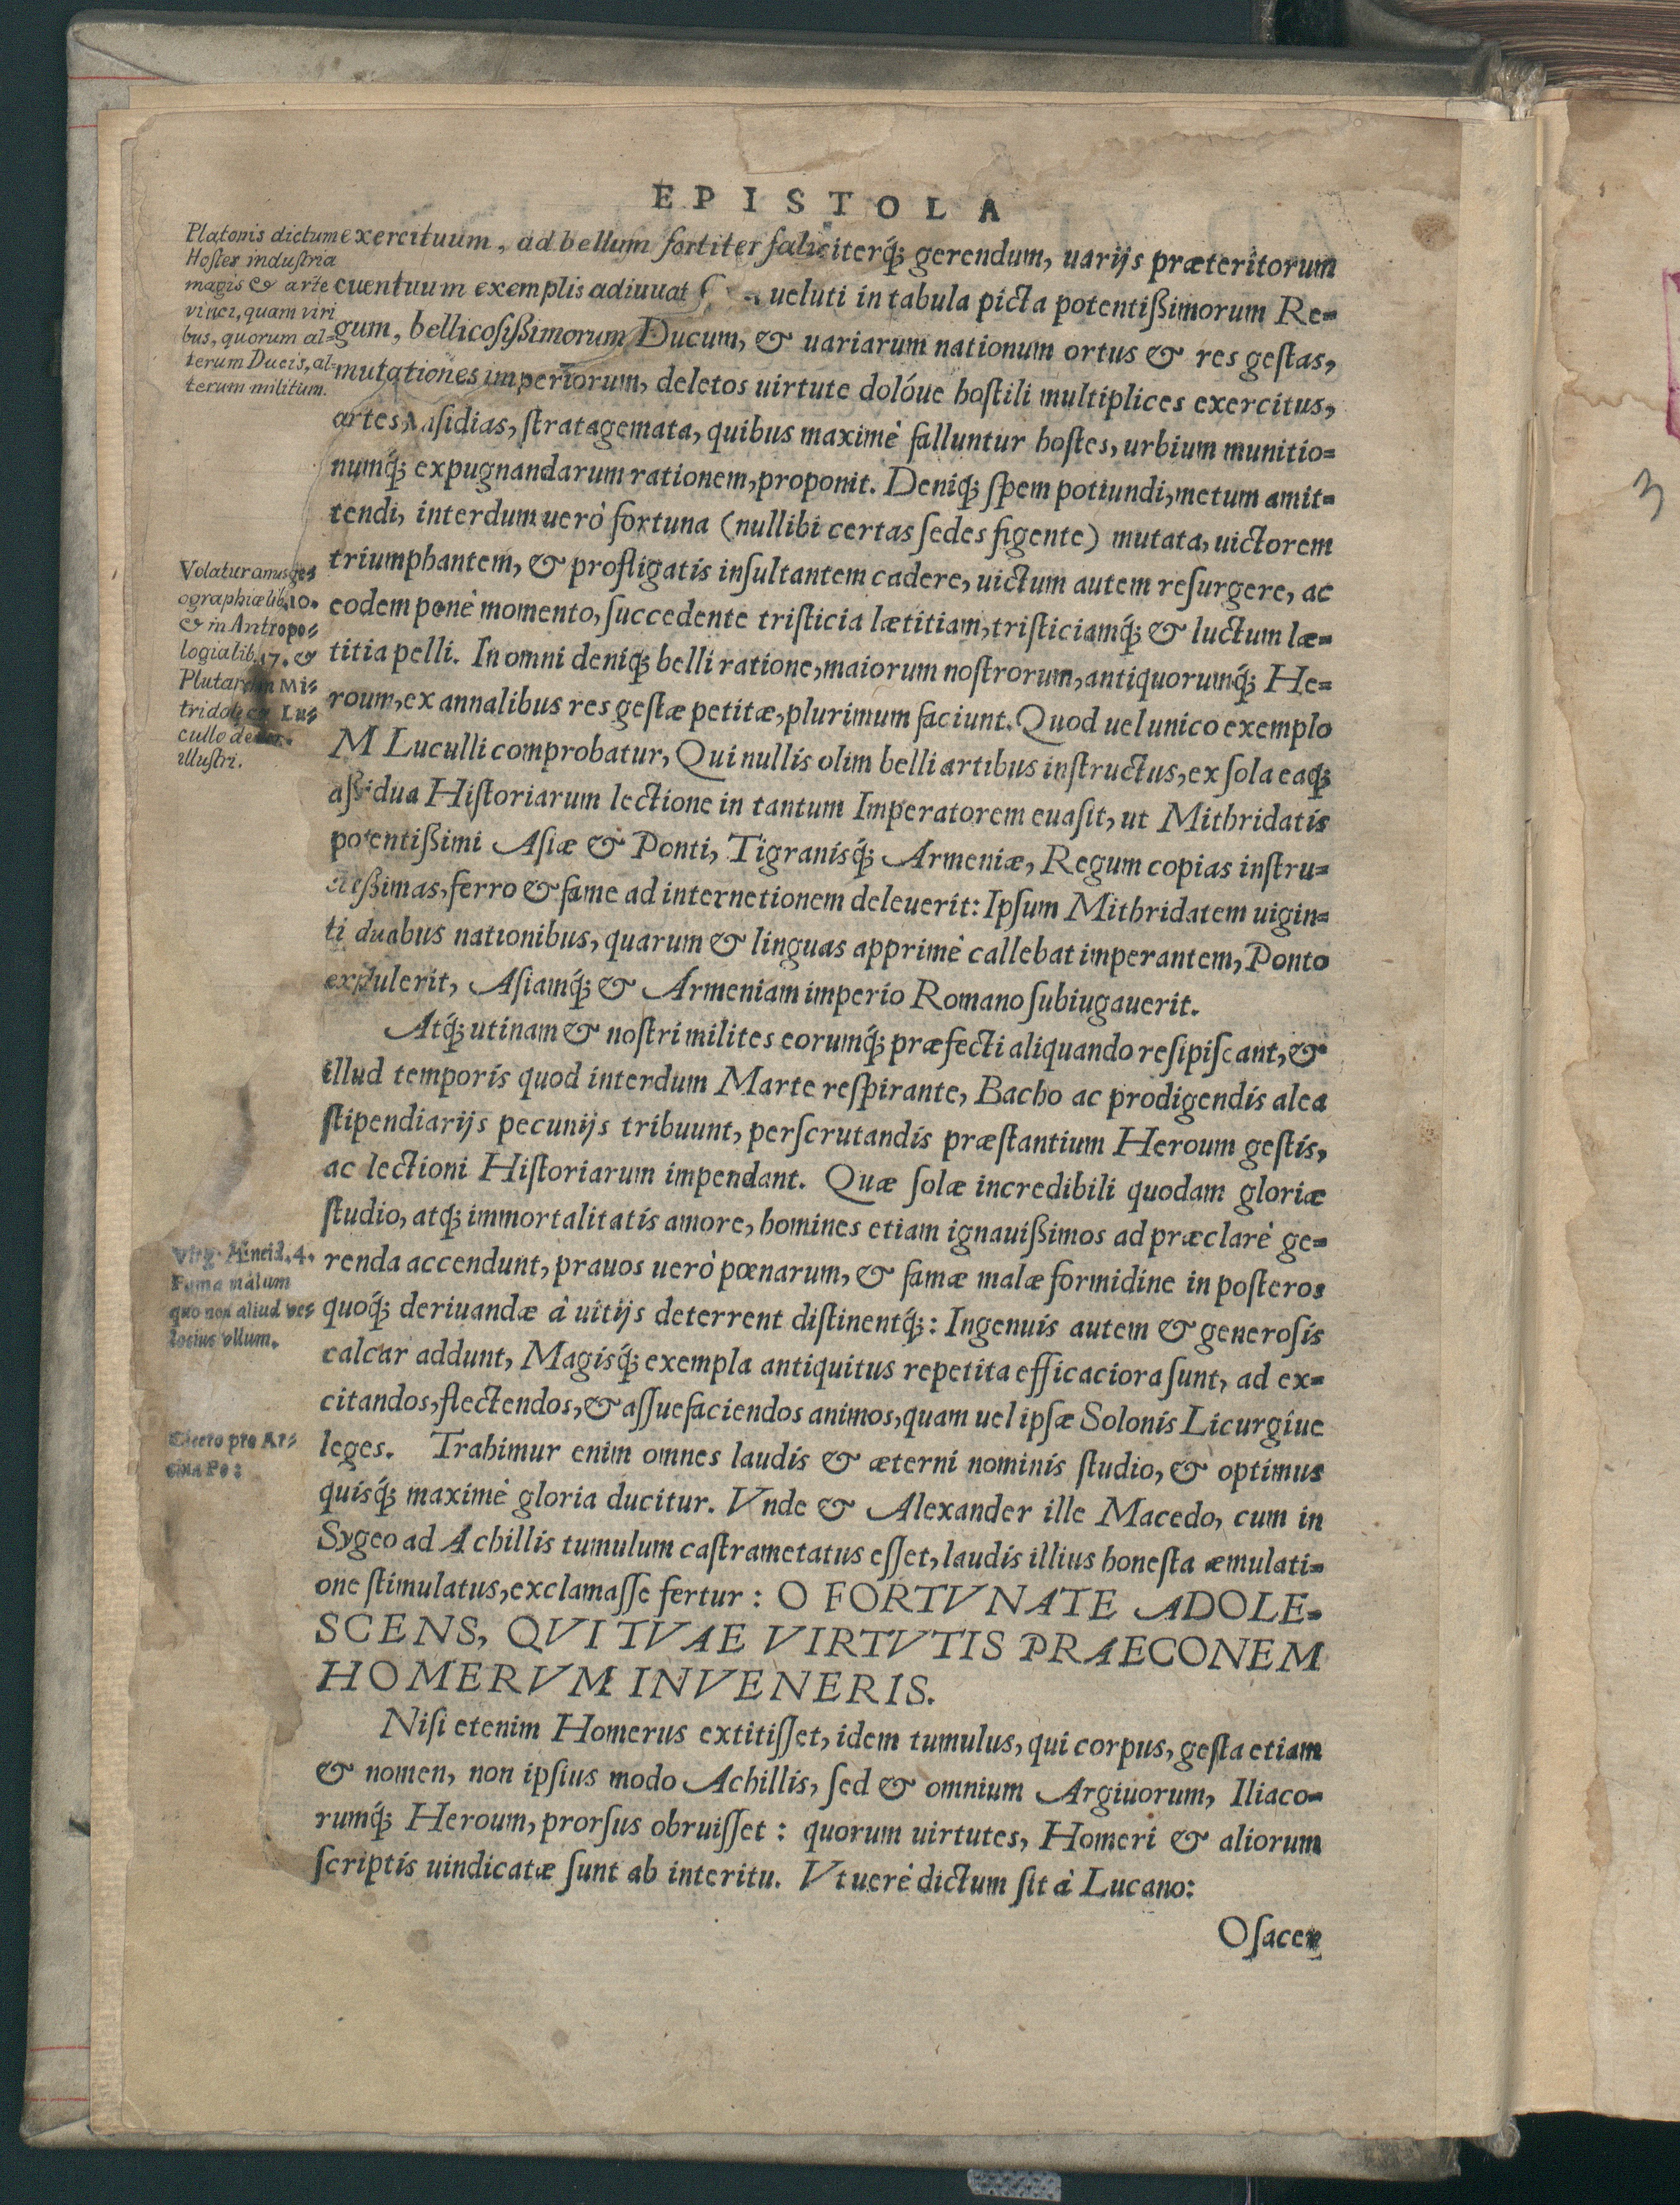 EPISTOLA
Platonis dictum
Hostes industria
magis & arte
vinci, quam viri
bus, quorum al-
terum Ducis, al-
terum militum.
exercituum, ad bellum fortiter fæliciterq́; gerendum, uarijs præteritorum
euentuum exemplis adiuuat ueluti in tabula picta potentißimorum Re-
gum, bellicosißimorum Ducum, & uariarum nationum ortus & res gestas,
mutationes imperiorum, deletos uirtute dolóue hostili multiplices exercitus,
artes, insidias, stratagemata, quibus maximè falluntur hostes, urbium munitio-
numq́; expugnandarum rationem, proponit. Deniq́; spem potiundi, metum amit-
tendi, interdum uerò fortuna (nullibi certas sedes figente) mutata, uictorem
triumphantem, & profligatis insultantem cadere, uictum autem resurgere, ac
eodem penè momento, succedente tristicia lætitiam, tristiciamq́; & luctum læ-
titia pelli. In omni deniq́; belli ratione, maiorum nostrorum, antiquorumq́; He-
roum, ex annalibus res gestæ petitæ, plurimum faciunt. Quod uel unico exemplo
M Luculli comprobatur, Qui nullis olim belli artibus instructus, ex sola eaq́;
aßidua Historiarum lectione in tantum Imperatorem euasit, ut Mithridatis
potentißimi Asiæ & Ponti, Tigranisq́; Armeniæ, Regum copias instru-
ctißimas, ferro & fame ad internetionem deleuerit: Ipsum Mithridatem uigin-
ti duabus nationibus, quarum & linguas apprimè callebat imperantem, Ponto
expulerit, Asiamq́; & Armeniam imperio Romano subiugauerit.
Volaturanus ge-
ographiæ lib. 10.
& in Antropo-
logia lib. 17. &
Plutar. in Mi-
tridate & Lu-
cullo de
illustri.
Atq́; utinam & nostri milites eorumq́; præfecti aliquando resipiscant, &
illud temporis quod interdum Marte respirante, Bacho ac prodigendis alea
stipendiarijs pecunijs tribuunt, perscrutandis præstantium Heroum gestis,
ac lectioni Historiarum impendant. Quæ solæ incredibili quodam gloriæ
studio, atq́; immortalitatis amore, homines etiam ignauißimos ad præclarè ge-
renda accendunt, prauos uerò pœnarum, & famæ malæ formidine in posteros
quoq́; deriuandæ à uitijs deterrent distinentq́;: Ingenuis autem & generosis
calcar addunt, Magisq́; exempla antiquitus repetita efficaciora sunt, ad ex-
citandos, flectendos, & assuefaciendos animos, quam uel ipsæ Solonis Licurgiue
leges. Trahimur enim omnes laudis & æterni nominis studio, & optimus
quisq́; maximè gloria ducitur. Vnde & Alexander ille Macedo, cum in
Sygeo ad Achillis tumulum castrametatus esset, laudis illius honesta æmulati-
one stimulatus, exclamasse fertur: O FORTVNATE ADOLE-
SCENS, QVI TVAE VIRTVTIS PRAECONEM
HOMERVM INVENERIS.
Virg. Æneid. 4.
Fama malum
quo non aliud ve-
locius vllum.
Cicero pro Ar-
chia Po:
Nisi etenim Homerus extitisset, idem tumulus, qui corpus, gesta etiam
& nomen, non ipsius modo Achillis, sed & omnium Argiuorum, Iliaco-
rumq́; Heroum, prorsus obruisset: quorum uirtutes, Homeri & aliorum
scriptis uindicatæ sunt ab interitu. Vt uerè dictum sit à Lucano:
O sacer
3